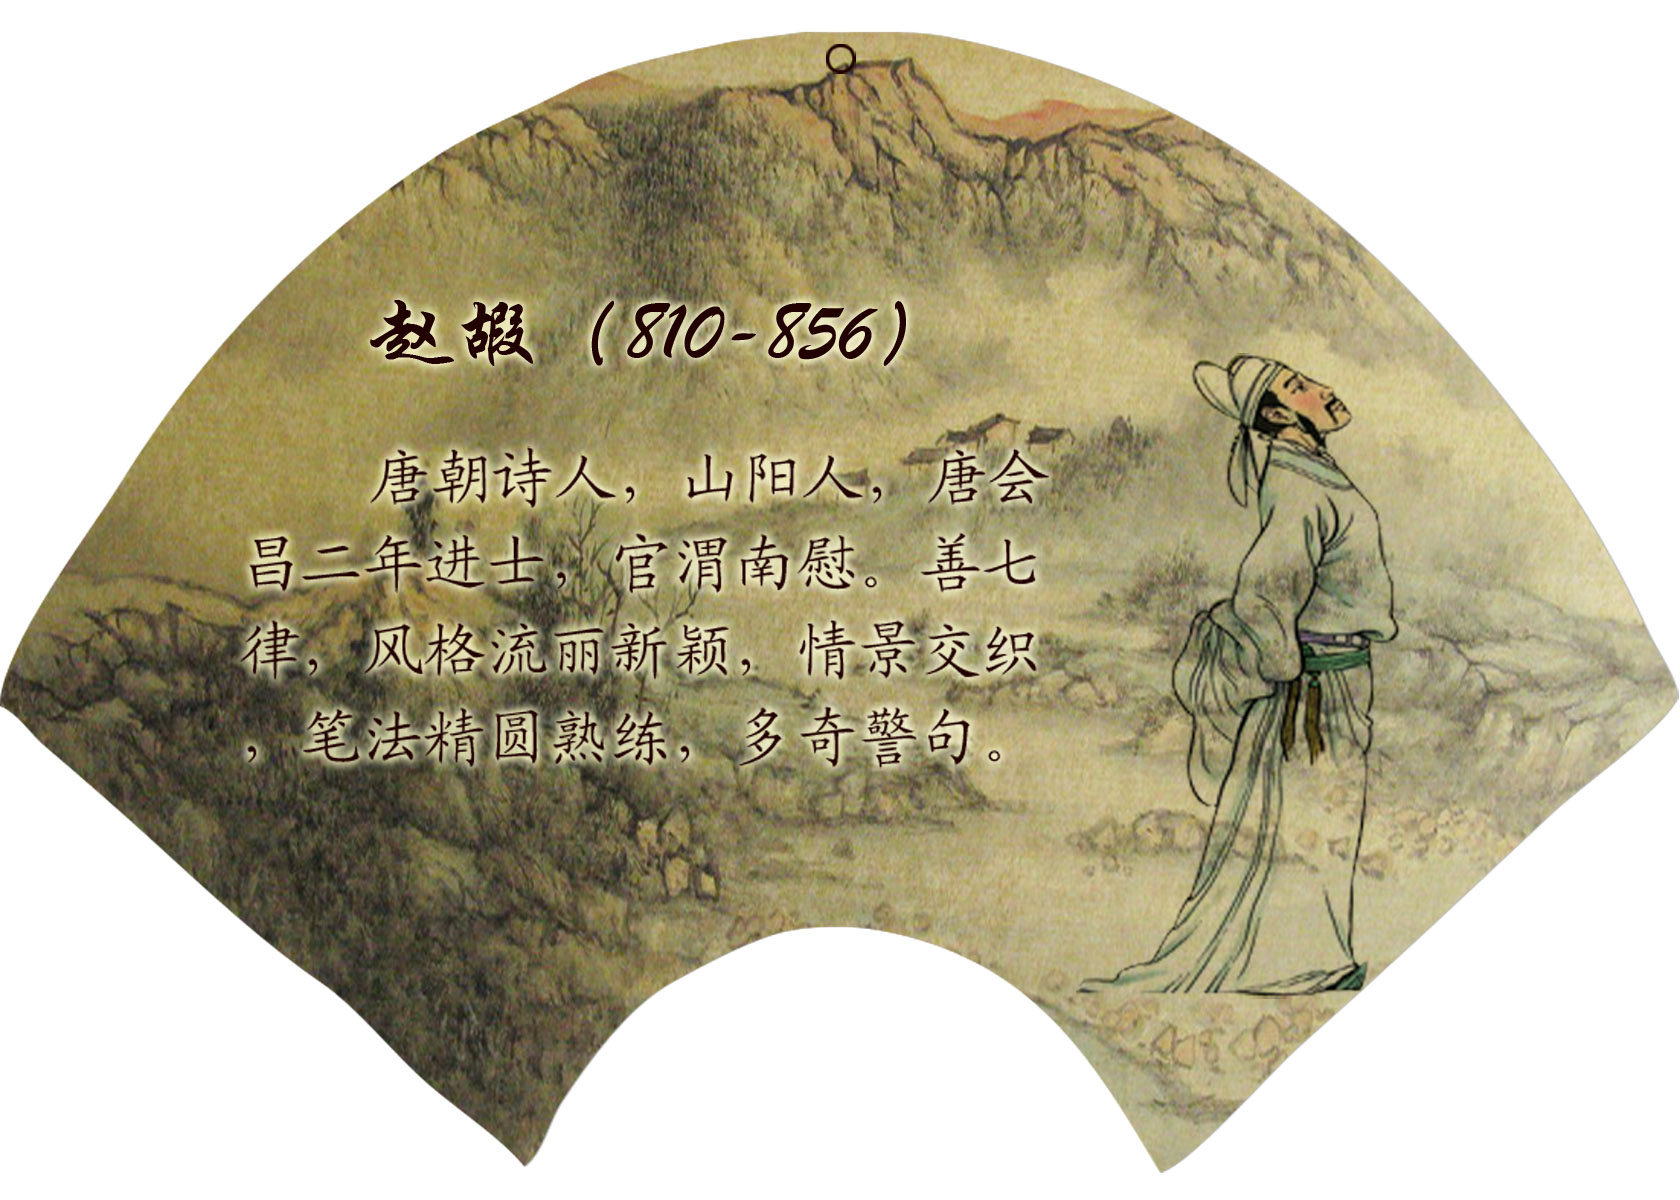 赵嘏（810-856）
唐朝诗人，山阳人，唐会
昌二年进士，官渭南慰。善七
律，风格流丽新颖，情景交织
，笔法精圆熟练，多奇警句。